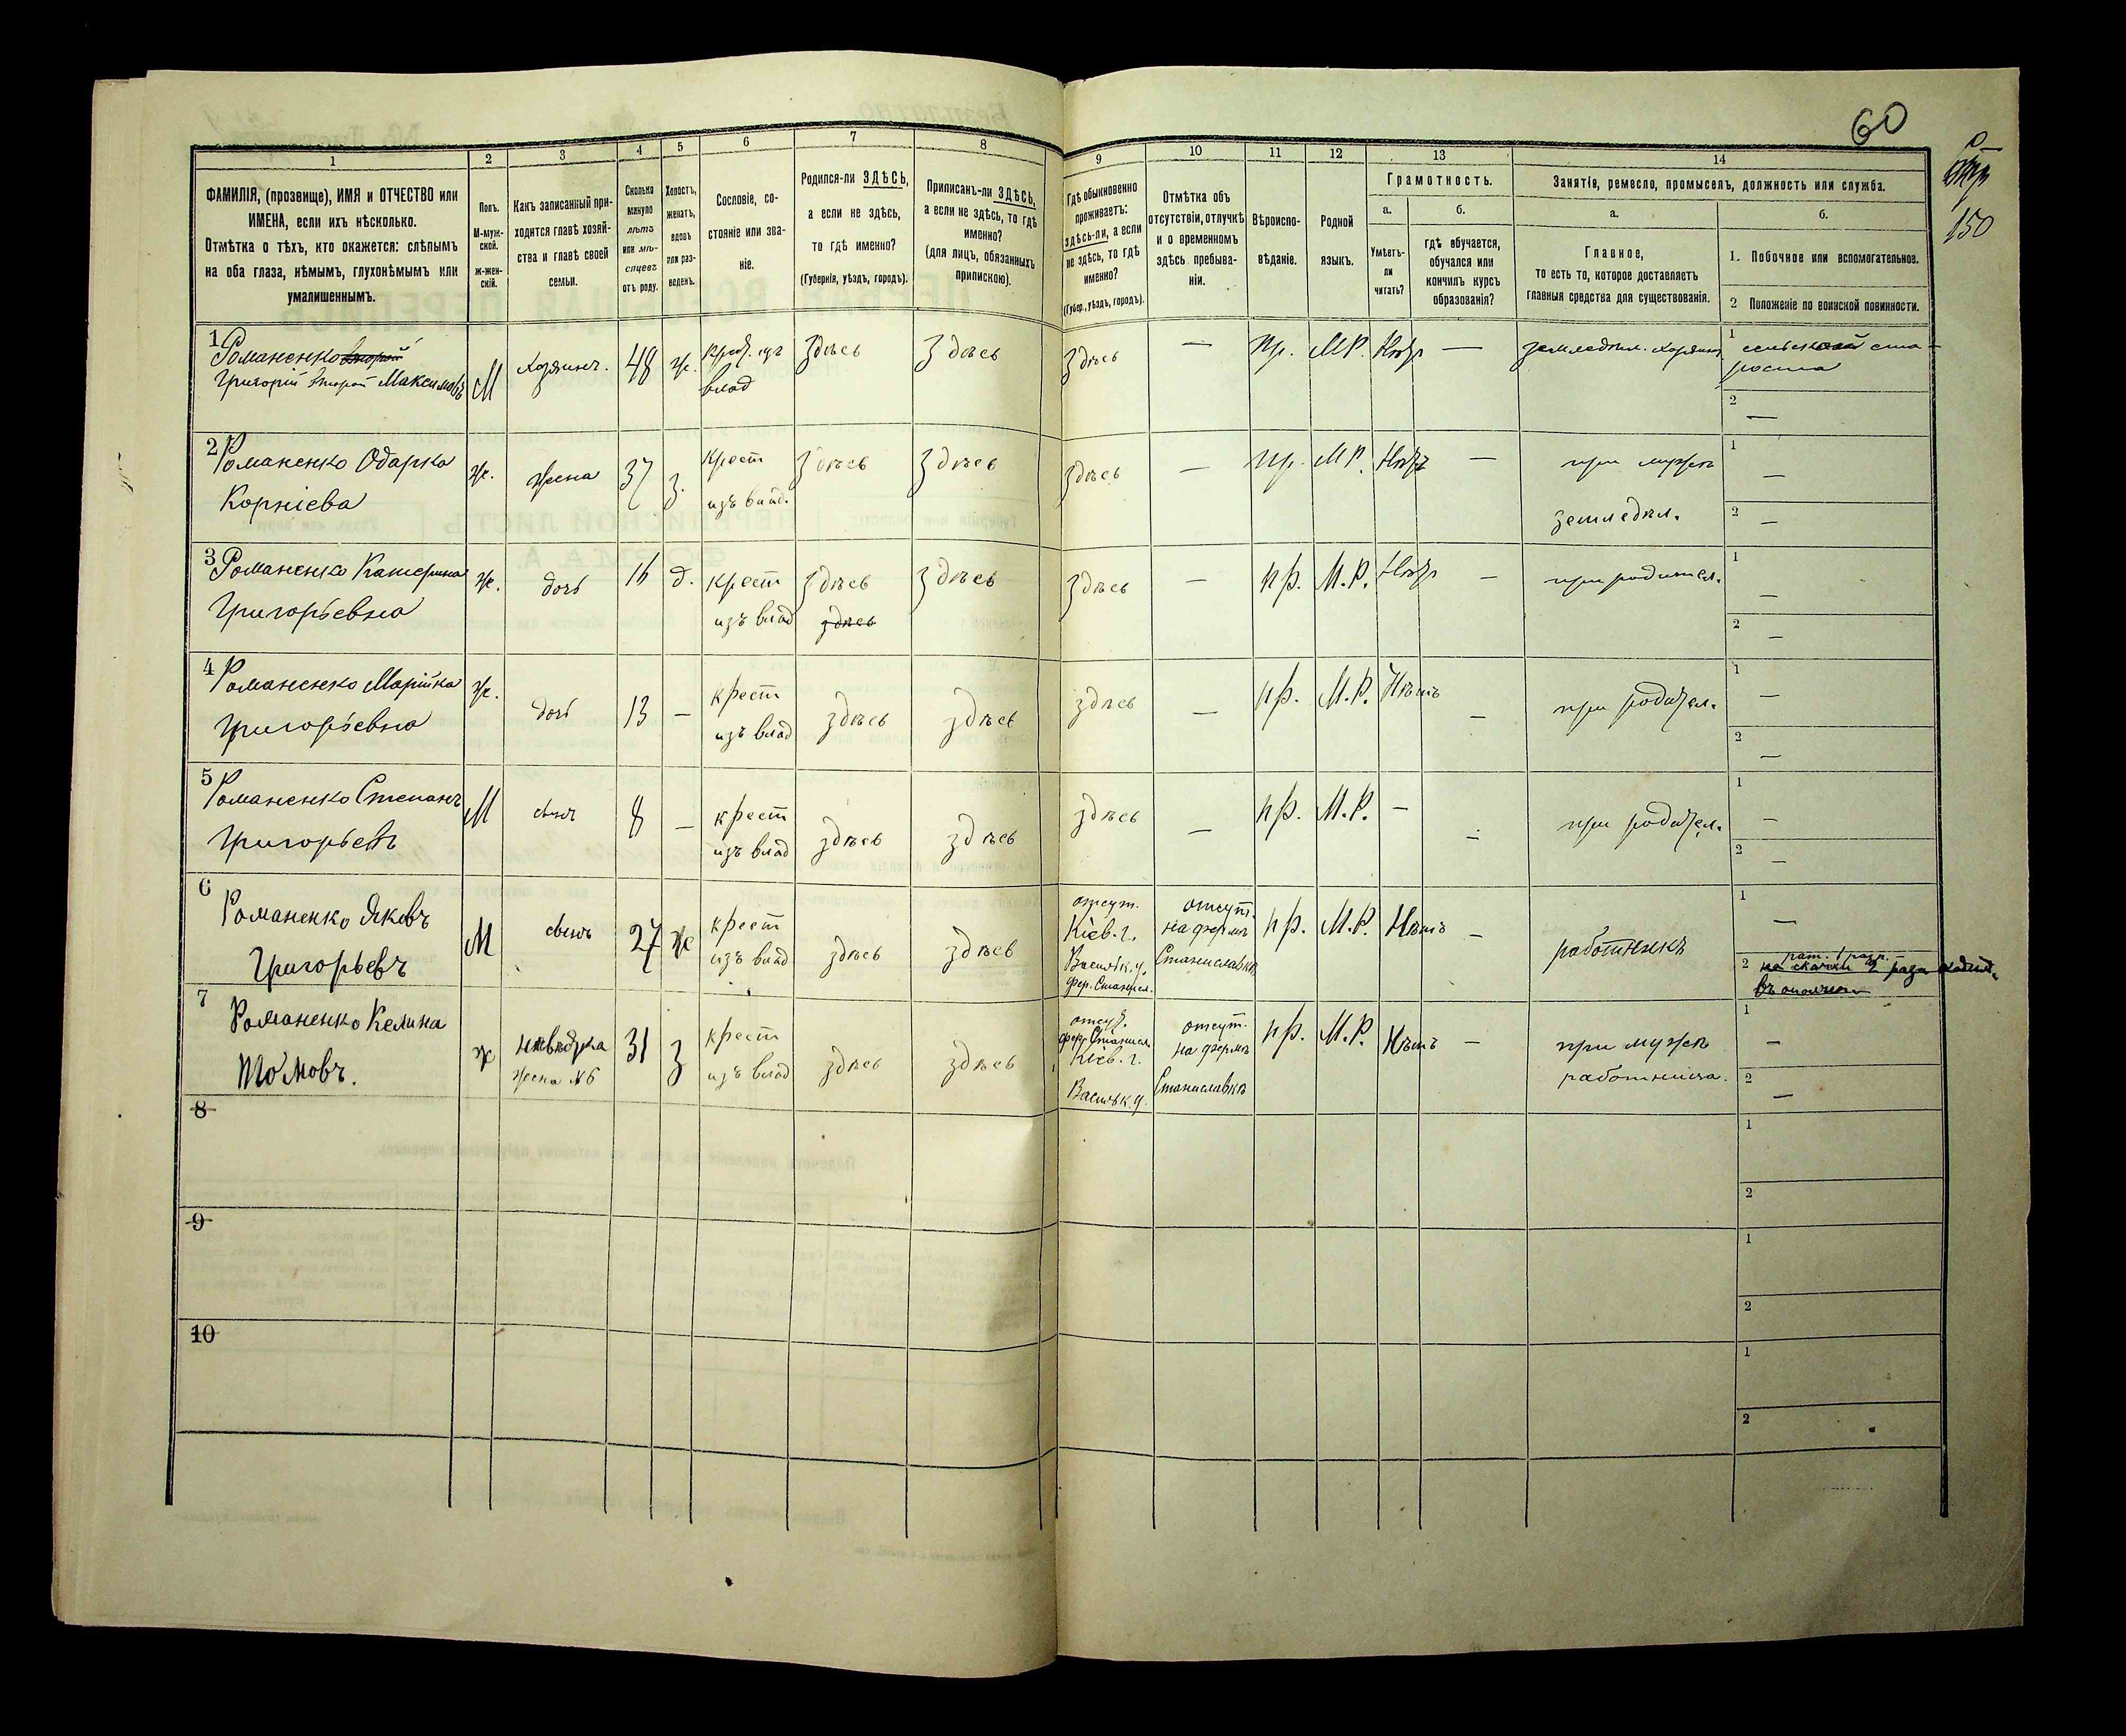 60
150
1 2 3 4 5 6 7 8 9 10 11 12 13 14
ФАМИЛІЯ, (прозвище), ИМЯ и ОТЧЕСТВО или
ИМЕНА, если ихъ нѣсколько.
Отмѣтка о тѣхъ, кто окажется: слѣпымъ
на оба глаза, нѣмымъ, глухонѣмымъ или
умалишеннымъ.
Полъ.
М-муж-
ской.
ж-жен-
скій.
Какъ записанный при-
ходится главѣ хозяй-
ства и главѣ своей
семьи.
Сколько
минуло
лѣтъ
или мѣ-
сяцевъ
отъ роду.
Холостъ,
женатъ,
вдовъ
или раз-
веденъ.
Сословіе, со-
стояніе или зва-
ніе.
Родился-ли ЗДѢСЬ,
а если не здѣсь,
то гдѣ именно?
(Губернія, уѣздъ, городъ).
Приписанъ-ли ЗДѢСЬ,
а если не здѣсь, то гдѣ
именно?
(для лицъ, обязанныхъ
припискою).
Гдѣ обыкновенно
проживаетъ:
здѣсь-ли, а если
не здѣсь, то гдѣ
именно?
(Губер., уѣздъ, городъ).
Отмѣтка объ
отсутствіи, отлучкѣ
и о временномъ
здѣсь пребыва-
ніи.
Вѣроиспо-
вѣданіе.
Родной
языкъ.
Грамотность.
а.
Умѣетъ-
ли
читать?
б.
гдѣ обучается,
обучался или
кончилъ курсъ
образованія?
Занятія, ремесло, промыселъ, должность или служба.
а.
Главное,
то есть то, которое доставляетъ
главныя средства для существованія.
б.
1. Побочное или вспомогательное.
2 Положеніе по воинской повинности.
1 Романенко второй
Григорій второй Максимовъ М Хозяинъ. 48 ж. Крест. изъ
влад здѣсь здѣсь здѣсь — пр. М.Р. Нѣтъ — земледѣл. хозяинъ 1 сельской ста-
роста
2 —
2 Романенко Одарка
Корніева ж. жена 37 з. крест
изъ влад. здѣсь здѣсь здѣсь — пр. М.Р. Нѣтъ — при мужѣ
земледѣл. 1 —
2 —
3 Романенко Катерина
Григорьевна ж. дочь 16 д. крест
изъ влад здѣсь
здѣсь здѣсь здѣсь — пр. М.Р. Нѣтъ — при родител. 1 —
2 —
4 Романенко Марійка
Григорьевна ж. дочь 13 — крест
изъ влад здѣсь здѣсь здѣсь — пр. М.Р. Нѣтъ — при родител. 1 —
2 —
5 Романенко Степанъ
Григорьевъ М сынъ 8 — крест
изъ влад здѣсь здѣсь здѣсь — пр. М.Р. — — при родител. 1 —
2 —
6 Романенко Яковъ
Григорьевъ М сынъ 27 ж крест
изъ влад здѣсь здѣсь отсут.
Кіев. г.
Васильк. у.
фер. Станисл. отсут.
на фермѣ
Станиславкѣ пр. М.Р. Нѣтъ — работникъ 1 —
2 рат. 1 разр.
7 Романенко Келина
Томовъ. ж невѣстка
жена №6 31 з крест
изъ влад здѣсь здѣсь отсут.
фер. Станисл.
Кіев. г.
Васильк. у. отсут.
на фермѣ
Станиславкѣ пр. М.Р. Нѣтъ — при мужѣ
работница. 1 —
2 —
8 1
2
9 1
2
10 1
2